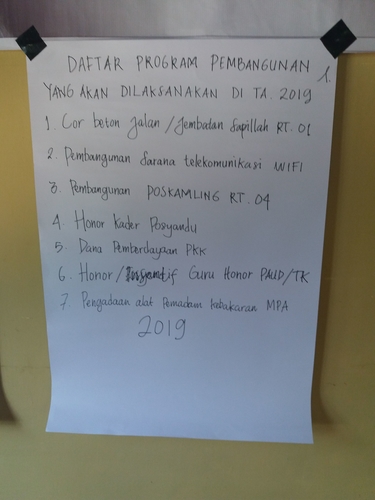 DAFTAR PROGRAM PEMBANGUNAN 1.
YANG AKAN DILAKSANAKAN DI. TA. 2019
1. Cor beton Jalan / Jembatan Sapillah RT. 01
2. Pembangunan Sarana telekomunikasi WIFI
3. Pembangunan POSKAMLING RT. 04
4. Honor Kader Posyandu
5. Dana Pemberdayaan PKK
6. Honor / Insentif Guru Honor PAUD/TK
7 Pengadaan alat Pemadam kebakaran MPA
2019